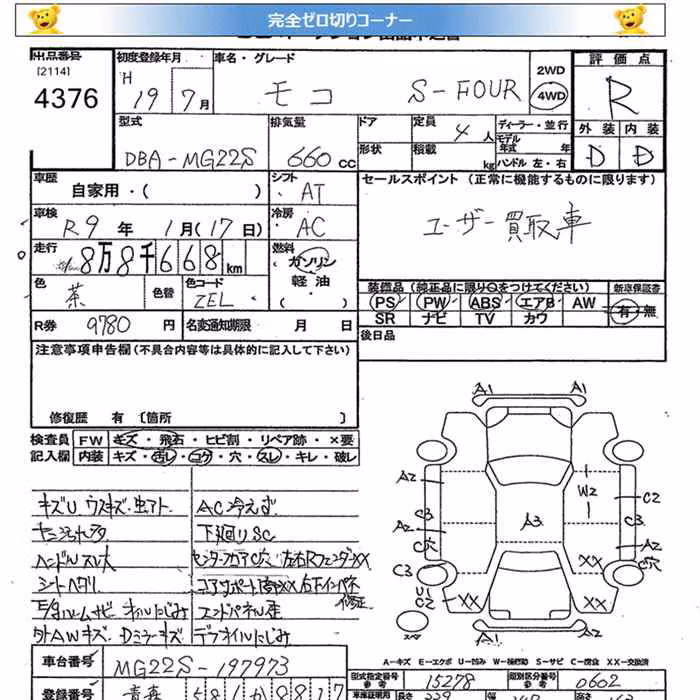 完全ゼロ切りコーナー
出品番号 初度登録年月 車名・グレード 2WD 評価点
[2114] H
4376 19 7月 モコ S-FOUR 4WD R
型式 排気量 ドア 定員 4人 ディーラー・並行 外装 内装
モデル年式 年
DBA-MG22S 660cc 形状 積載 kg ハンドル 左・右 D D
車歴 シフト セールスポイント (正常に機能するものに限ります)
自家用・( ) AT
車検 冷房 ユーザー買取車
R9年 1月(17日) AC
走行 燃料
8万8千668km ガソリン
軽油
色 色替 色コード ( ) 装備品 (純正品に限り○をつけてください) 新車保証書
茶 ZEL PS PW ABS エアB AW 有・無
R券 9780円 名変通知期限 月 日 SR ナビ TV カワ
注意事項申告欄(不具合内容等は具体的に記入して下さい) 後日品
修復歴 有 〔箇所 〕
検査員 FW キズ・飛石・ヒビ割・リペア跡・×要
記入欄 内装 キズ・汚レ・コゲ・穴・スレ・キレ・破レ
キズU ウスキズ・虫アト AC冷えず
下廻りSC
ハンドルスレ大
シートヘタリ
エンドパネル歪
外AWキズ、Dミラーキズ デフオイルにじみ
A1 A1
A2 W2 C2
C3 A3 C3
A2 A2
C穴 C穴
C3 XX
U1
C2 XX XX
スペア A1 A1
A-キズ E-エクボ U-凹み W-補修跡 S-サビ C-腐食 XX-交換済
車台番号 MG22S-197973
型式指定番号 15278 類別区分番号 0602
登録番号 青森 581 か 8817